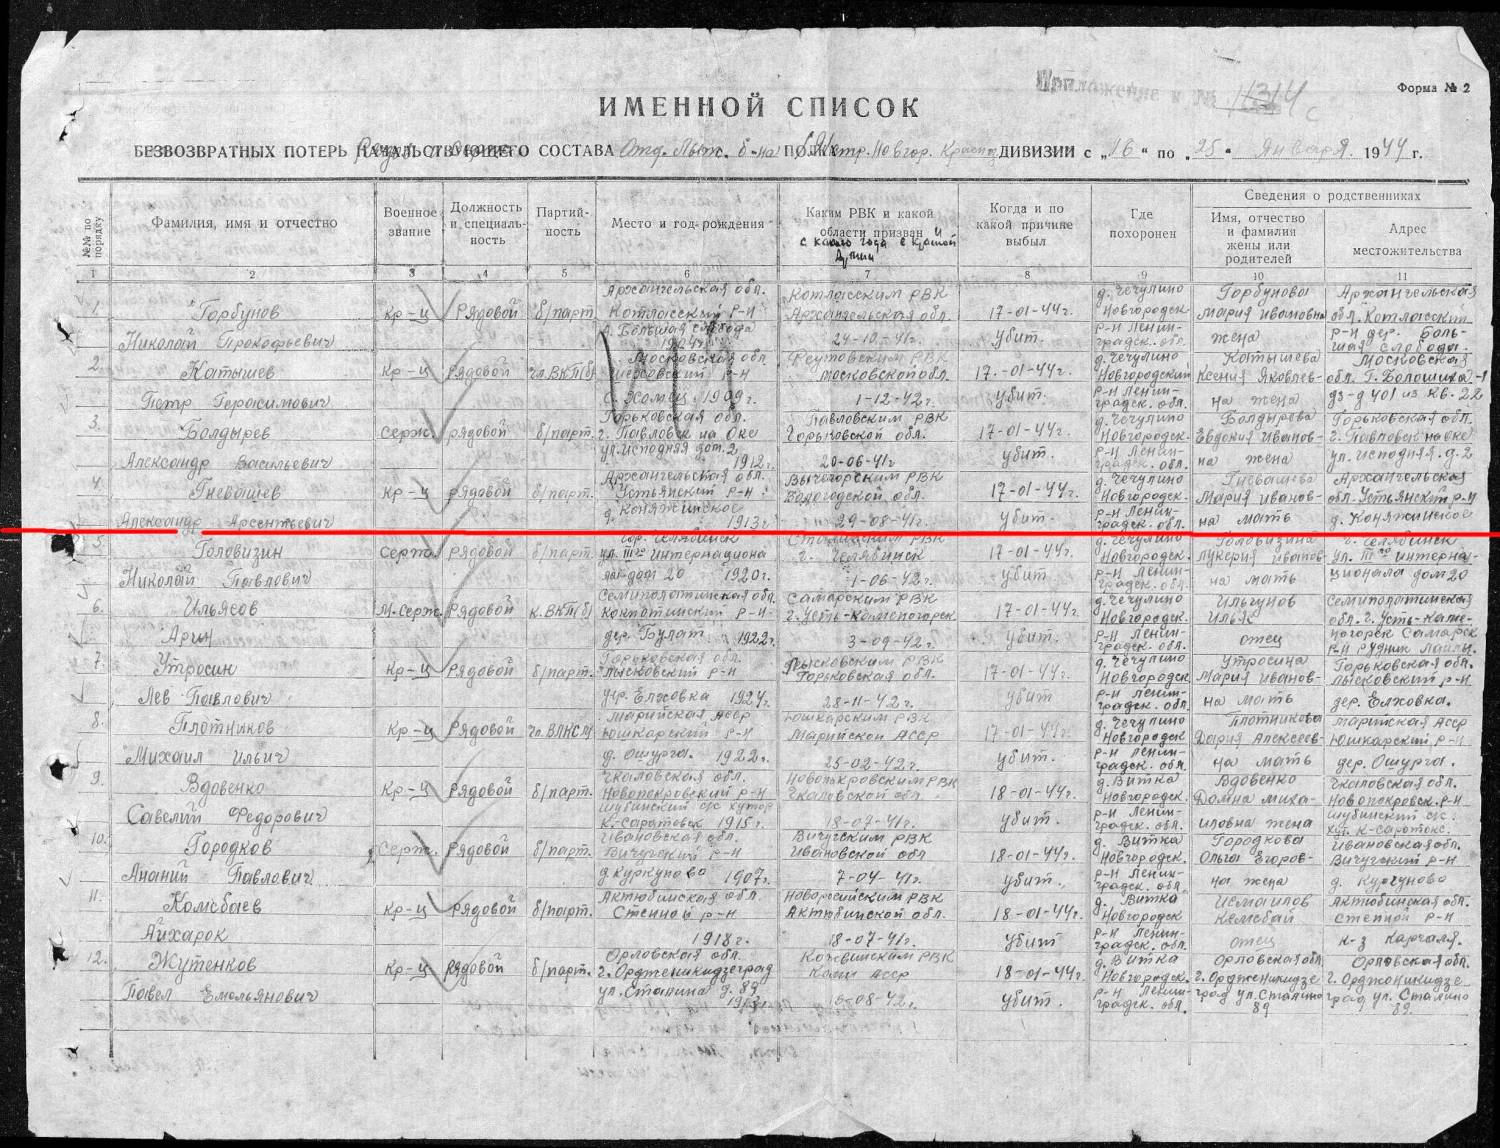 Приложение к № 11314с
Форма № 2
ИМЕННОЙ СПИСОК
БЕЗВОЗВРАТНЫХ ПОТЕРЬ НАЧАЛЬСТВУЮЩЕГО СОСТАВА Отд. Лыж. б-на ПОЛКА стр. Новгор. Красноз. ДИВИЗИИ с „16“ по „25“ января 1944 г.
№№ по порядку
Фамилия, имя и отчество
Военное звание
Должность и специальность
Партийность
Место и год рождения
Каким РВК и какой области призван и с какого года в Красной Армии
Когда и по какой причине выбыл
Где похоронен
Сведения о родственниках
Имя, отчество и фамилия жены или родителей
Адрес местожительства
1 2 3 4 5 6 7 8 9 10 11
1. Горбунов Николай Прокофьевич кр-ц Рядовой б/парт Архангельская обл. Котласский р-н д. Большая слобода 1924г. Котласским РВК Архангельская обл. 24-10-41г. 17-01-44г. убит. д. Чечулино Новгородск. р-н Ленинградск. обл. Горбунова Мария Ивановна жена Архангельская обл. Котласский р-н дер. Большая Слобода.
2. Катышев Петр Герасимович Кр-ц рядовой чл. ВКП(б) Московская обл р-н 1909г. Реутовским РВК Московской обл. 1-12-42г. 17-01-44г. убит. д. Чечулино Новгородский р-н Ленинградск. обл. Катышева Ксения Яковлевна жена Московская обл. г. Балашиха-1 д-д 401 кв. 22
3. Болдырев Александр Васильевич Серж. рядовой б/парт. Горьковская обл. г. Павловск на Оке ул. Исподняя дом. 2 1912г. Павловским РВК Горьковской обл. 20-06-41г 17-01-44г. убит. д. Чечулино Новгородск. р-н Ленинградск. обл. Болдырева Евдокия Ивановна жена Горьковская обл. г. Павловск на Оке ул. Исподняя. д. 2
4. Гневашев Александр Арсентьевич Кр-ц рядовой б/парт. Архангельская обл. Устьянский р-н д. Коняжинское 1913г. Вологодской обл. 29-08-41г. 17-01-44г. убит. д. Чечулино Новгородск. р-н Ленинградск. обл. Гневашева Мария Ивановна мать Архангельская обл. Устьянский р-н д. Коняжинское
5. Головизин Николай Павлович Серж. рядовой б/парт. гор. Челябинск ул. IIIго интернационал дом 20 1920г. Сталинским РВК г. Челябинск 1-06-42г. 17-01-44г. убит д. Чечулино Новгородск. р-н Ленинградск. обл. Головизина Лукерия Ивановна мать г. Челябинск ул. IIIго интернационала дом 20
6. Ильясов Арип М. Серж. Рядовой к. ВКП(б) Семипалатинская обл. Кокпатинский р-н дер. Булат. 1922г. Самарским РВК г. Усть-Каменогорск 3-09-42г. 17-01-44г. убит. д. Чечулино Новгородск. р-н Ленинградск. обл. Ильяс отец Семипалатинская обл. г. Усть-Каменогорск Самарск р-н Рудник
7. Утросин Лев Павлович Кр-ц Рядовой б/парт. Горьковская обл. Лысковский р-н дер. Елховка 1924г. Лысковским РВК Горьковская обл. 28-11-42г. 17-01-44г. убит д. Чечулино Новгородск р-н Ленинградск. обл. Утросина Мария Ивановна мать Горьковская обл. Лысковский р-н дер. Елховка.
8. Плотников Михаил Ильич Кр-ц Рядовой чл. ВЛКСМ Марийская АССР Юшкарский р-н д. Ошурга. 1922г. Юшкарским РВК Марийской АССР 25-02-42г. 17-01-44г. убит. д. Чечулино Новгородск р-н Ленинградск. обл. Плотникова Дария Алексеевна мать Марийская АССР Юшкарский р-н дер. Ошурга.
9. Вдовенко Савелий Федорович Кр-ц рядовой б/парт. Чкаловская обл. Новопокровский р-н Шубинский с/с хутор К.-Саратовск 1915г. Новопокровским РВК Чкаловской обл 18-07-41г. 18-01-44г. убит. д. Витка Новгородск. р-н Ленинградск. обл. Вдовенко Домна Михайловна жена Чкаловская обл. Новопокровск. р-н Шубинский с/с.
10. Городков Ананий Павлович Серж. Рядовой б/парт. Ивановская обл. Вичугский р-н д. Куркуново 1907г. Вичугским РВК Ивановской обл 7-04-41г. 18-01-44г. убит. д. Витка Новгородск. р-н Ленинградск. обл. Городкова Ольга Егоровна жена Ивановская обл. Вичугский р-н
11. Комсбаев Айхарок Кр-ц рядовой б/парт. Актюбинская обл. Степной р-н 1918г. Новоросийским РВК Актюбинской обл. 18-07-41г. 18-01-44г. убит д. Витка Новгородск р-н Ленинградск. обл. Исмагилов Кемсбай отец Актюбинская обл. Степной р-н к-з Карчаля.
12. Жутенков Павел Емельянович Кр-ц рядовой б/парт. Орловская обл. г. Орджоникидзеград ул. Сталина д. 89 Кожвинским РВК Коми АССР 18-01-44г убит. д. Витка Новгородск. р-н Ленинградск. обл. Орловская обл. г. Орджоникидзеград ул. Сталина 89 Орловская обл. г. Орджоникидзеград ул. Сталина 89.